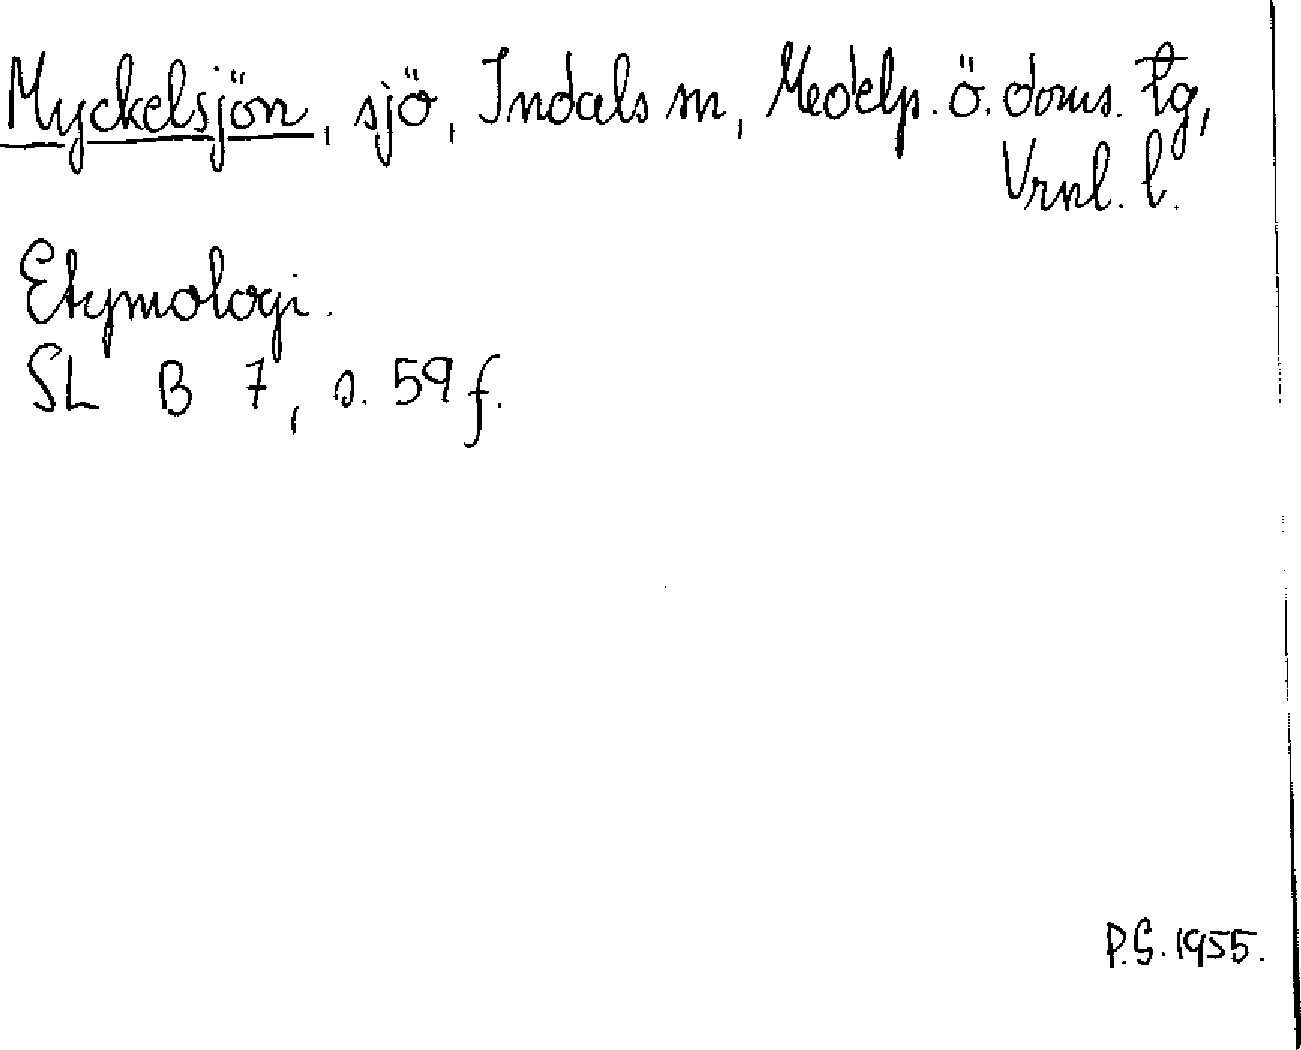 Myckelsjön, sjö, Indals sn, Medelp. ö. doms. tg,
Vrnl. l.
Etymologi.
SL B 7, s. 59 f.
P.G. 1955.